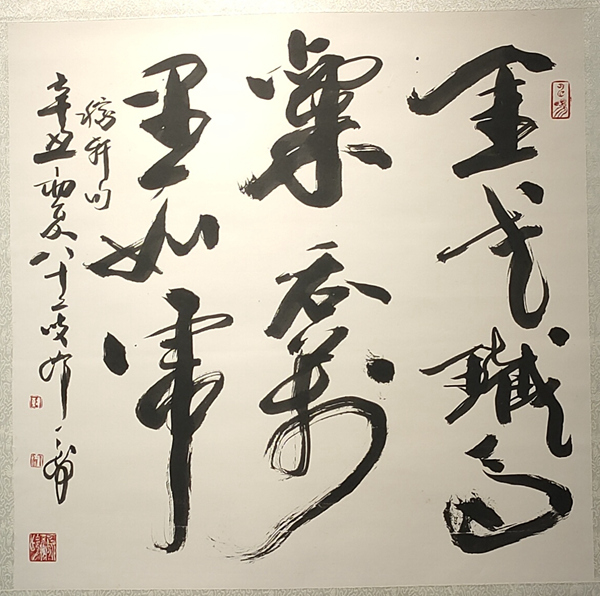 金戈鐵馬
氣吞萬
里如虎
稼軒句
辛丑初夏八十二歲